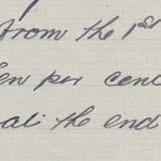 from the 1st
en per cent
at the end